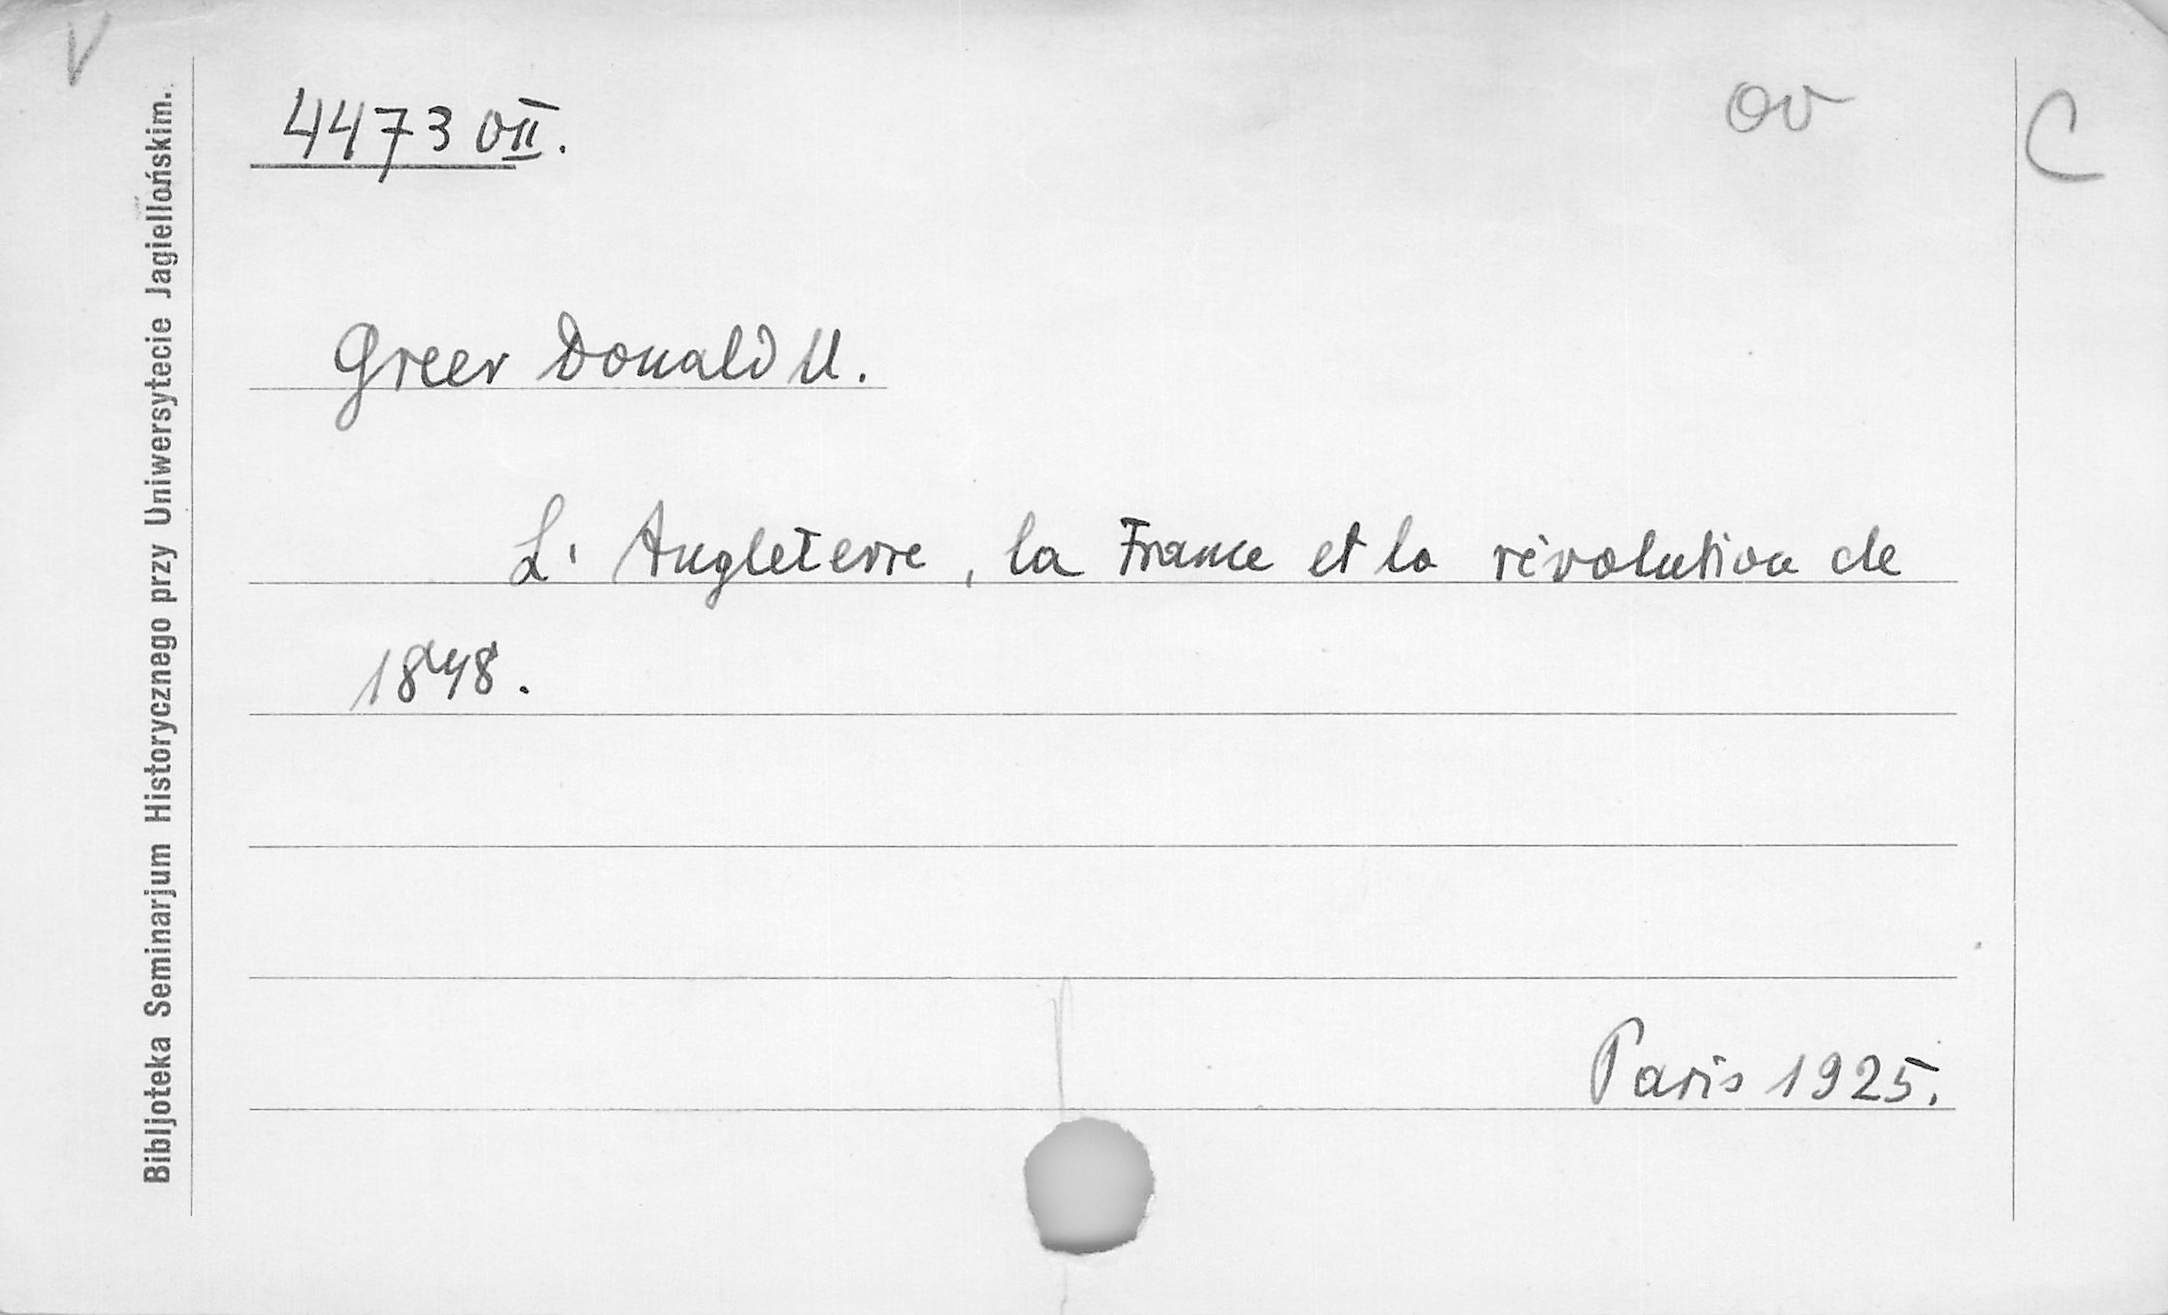 V
4473 VII.
ov
C
Greer Donald M.
L' Angleterre, la France et la révolution de
1848.
Paris 1925.
Bibljoteka Seminarjum Historycznego przy Uniwersytecie Jagiellońskim.